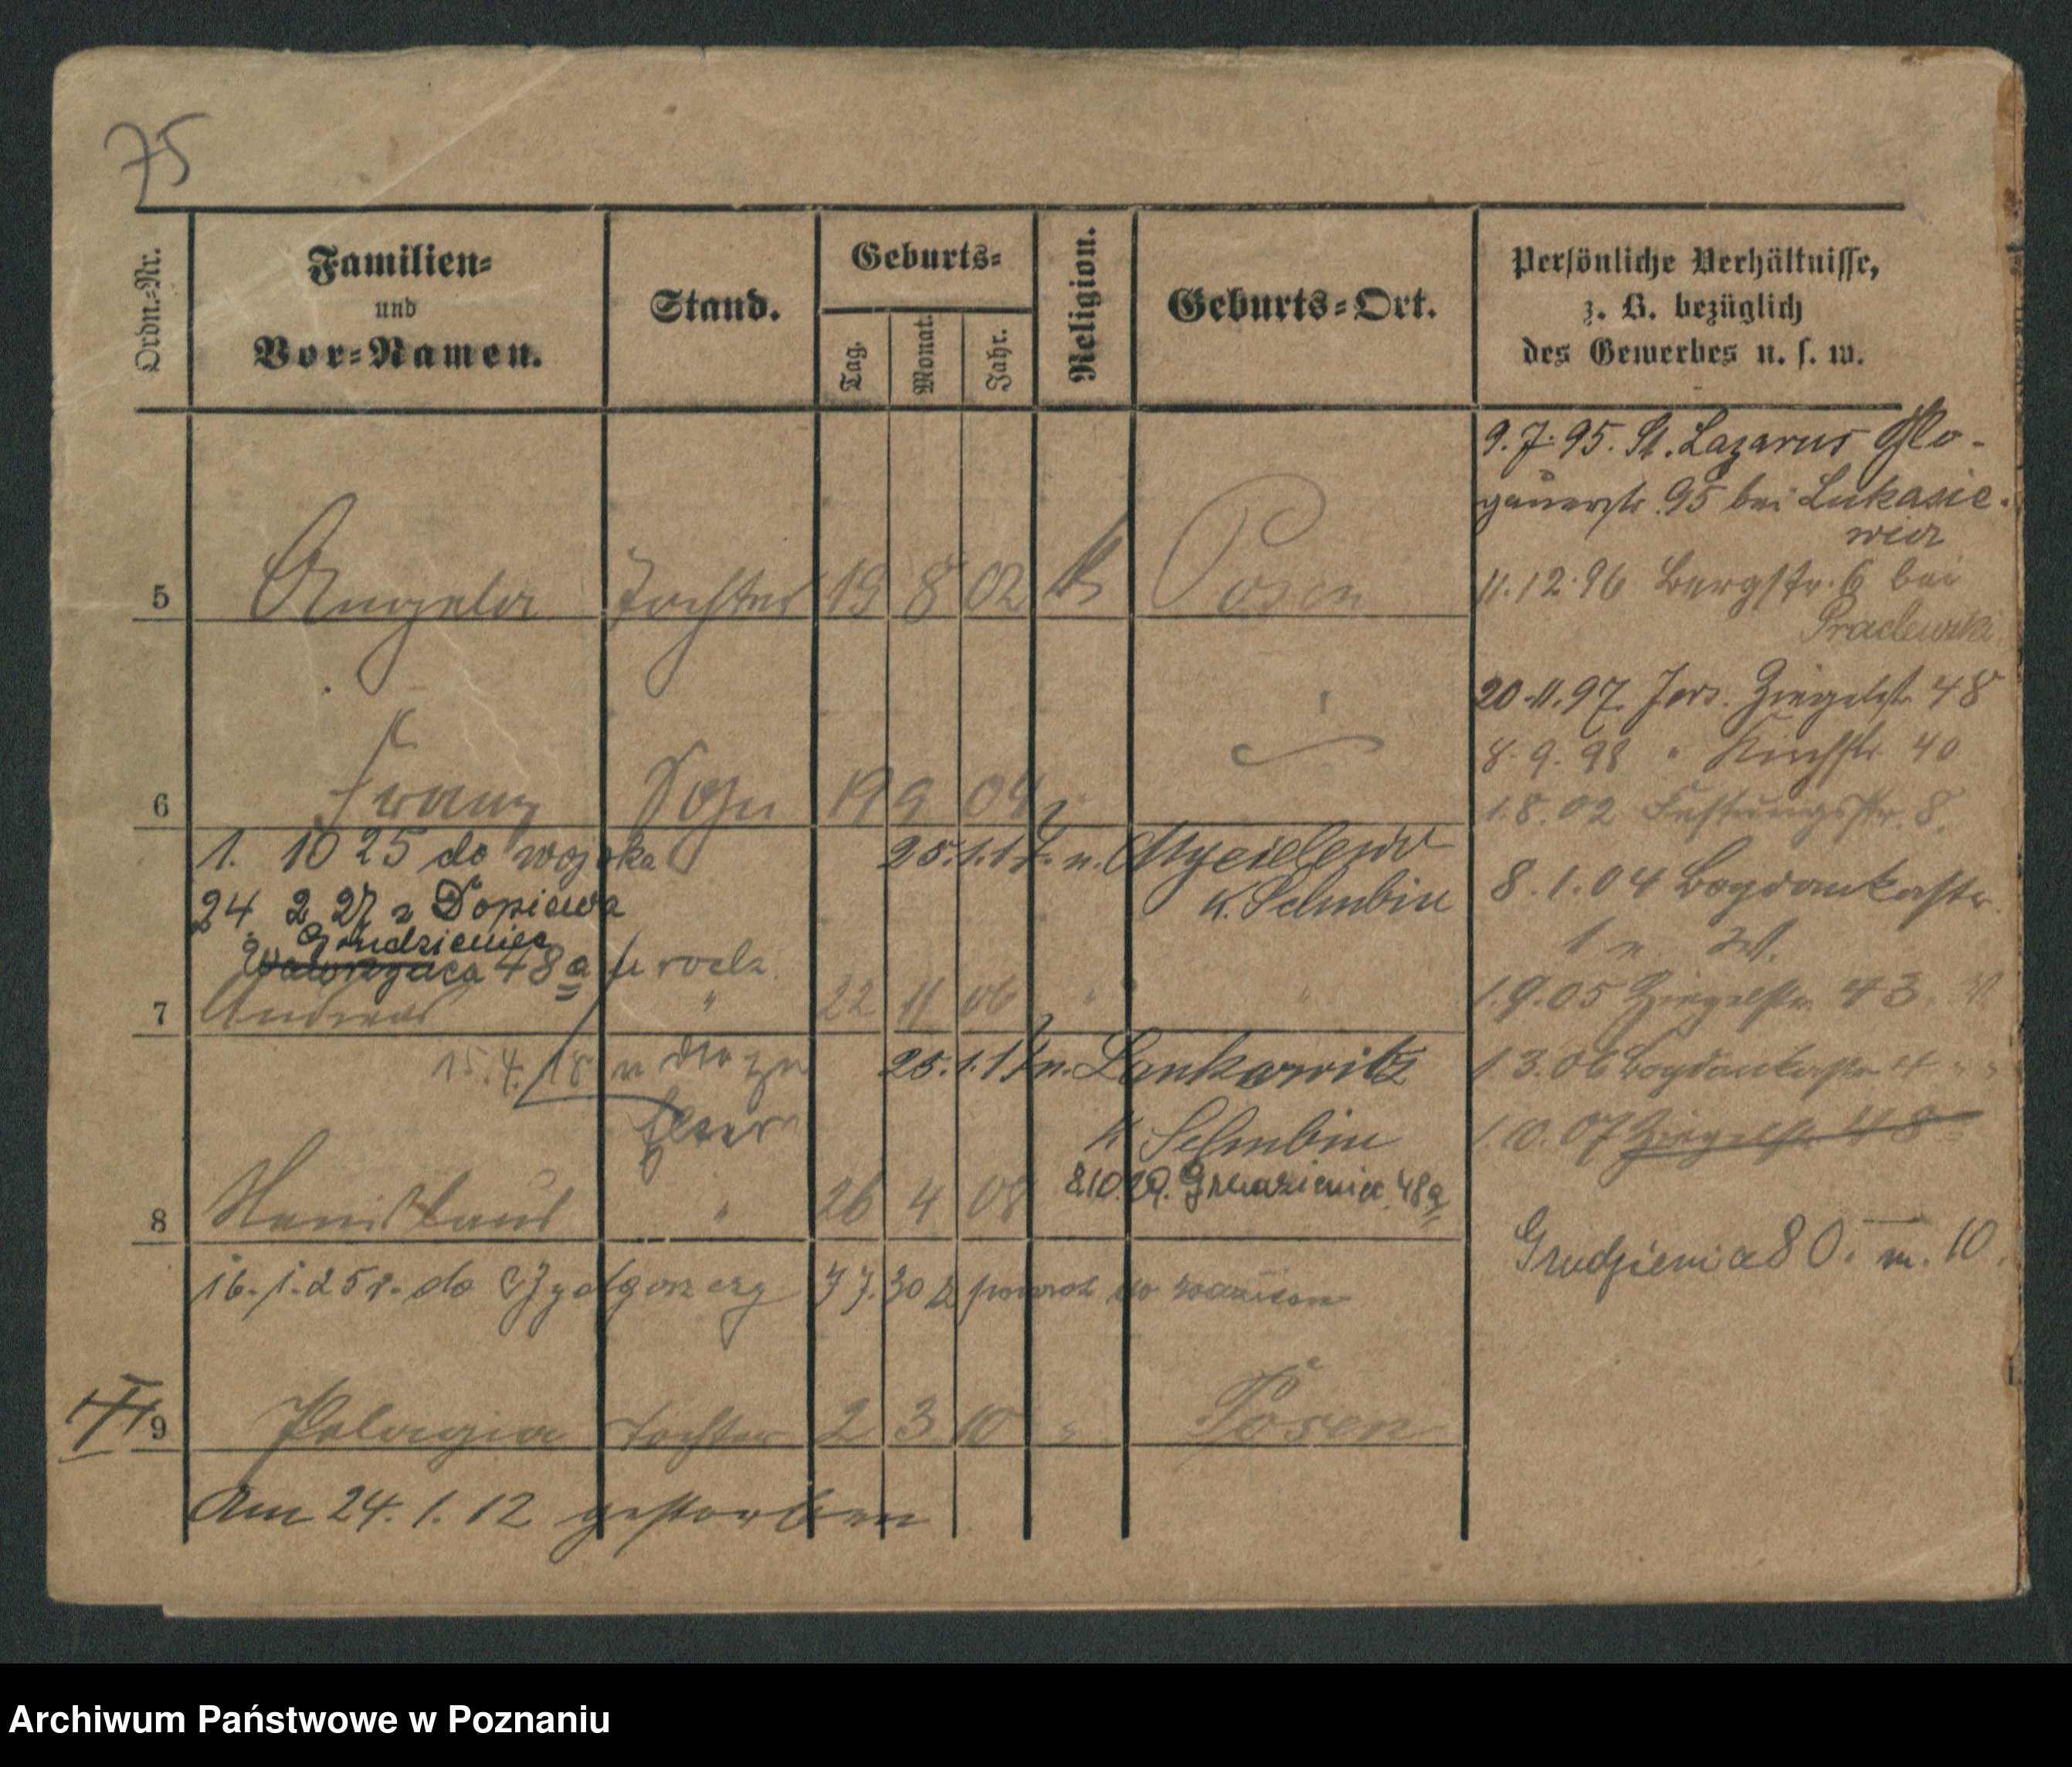 75
Ordn.-Nr.
Familien-
und
Vor-Namen.
Stand.
Geburts-
Tag.
Monat.
Jahr.
Religion.
Geburts-Ort.
Persönliche Verhältnisse,
z. B. bezüglich
des Gewerbes u. s. w.
5 Angela Tochter 19 8 02 K Posen
6 Franz Sohn 19 9 04
1. 10 25 do wojska
25.1.17. n.
K. Schubin
24. 2 27 z Dopiewa
Grudzieniec
48a
7 Andreas " 22 11 06 " "
15.4.18 zu
25.1.17 n. Lankowitz
K Schubin
8.10.29. Grudzieniec 48a
8 Stanislaus " 26 4 08
16.1.25 r. do
powrot do
9 Pelagia Tochter 2 3 10 " Posen
Am 24. 1. 12 gestorben
9.7.95. St. Lazarus Glo-
gauerstr. 95 bei Lukasie-
wicz
11.12.96 Bergstr. 6 bei
20.11.97 Jers. Ziegelstr 48
8.9.98 " Kirchstr 40
1.8.02 Festungsstr. 8.
8.1.04 Bogdankastr.
1.9.05 Ziegelstr. 43
1.3.06 Bogdankastr 4 " "
1.10.07 Ziegelstr. 48
m. 10.
Archiwum Państwowe w Poznaniu